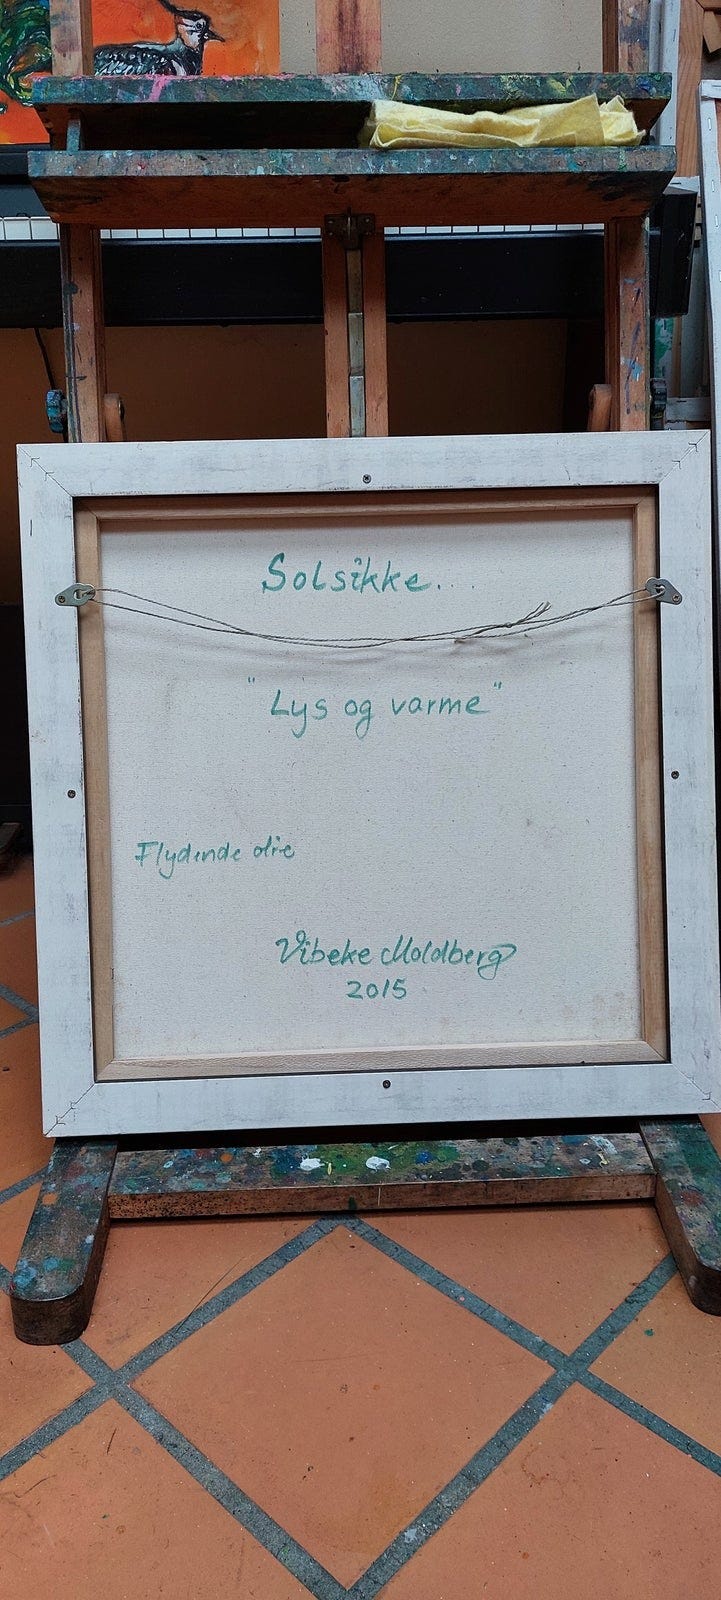 Solsikke...
"Lys og varme"
Flydende olie
Vibeke Moldberg
2015